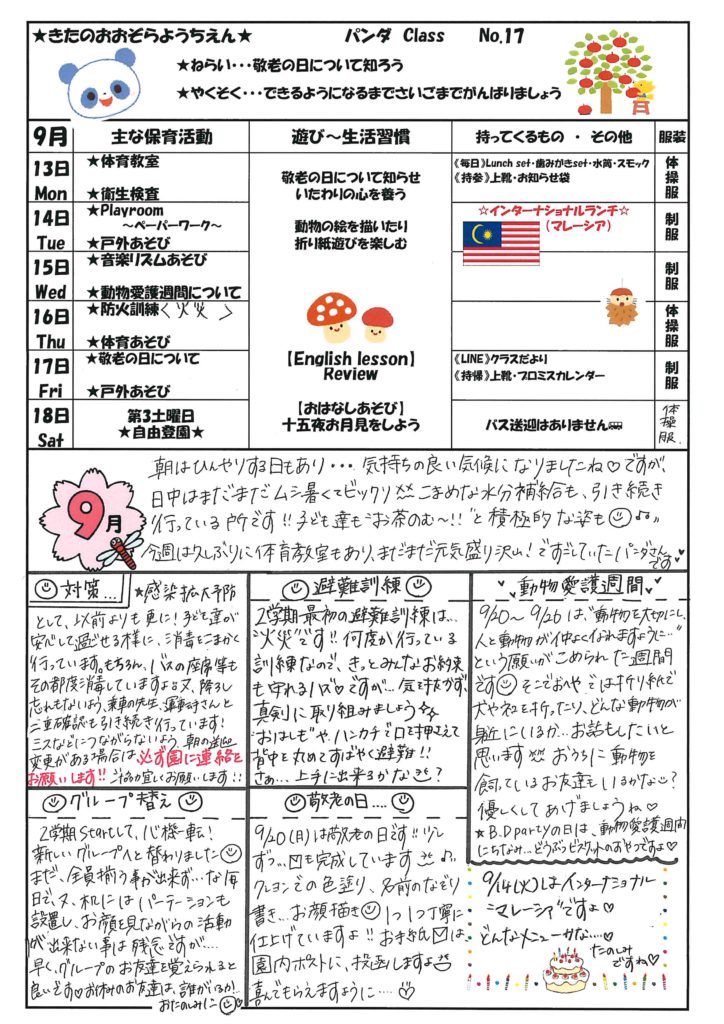 ★きたのおおぞらようちえん★ パンダ Class No.17
★ねらい・・・敬老の日について知ろう
★やくそく・・・できるようになるまでさいごまでがんばりましょう
9月 主な保育活動 遊び～生活習慣 持ってくるもの ・ その他 服装
13日 Mon
★体育教室
★衛生検査
14日 Tue
★Playroom
～ペーパーワーク～
★戸外あそび
15日 Wed
★音楽リズムあそび
★動物愛護週間について
16日 Thu
★防火訓練〈火災〉
★体育あそび
17日 Fri
★敬老の日について
★戸外あそび
18日 Sat
第3土曜日
★自由登園★
敬老の日について知らせ
いたわりの心を養う
動物の絵を描いたり
折り紙遊びを楽しむ
【English lesson】
Review
【おはなしあそび】
十五夜お月見をしよう
《毎日》Lunch set・歯みがきset・水筒・スモック
《持参》上靴・お知らせ袋
☆インターナショナルランチ☆
（マレーシア）
《LINE》クラスだより
《持帰》上靴・プロミスカレンダー
バス送迎はありません
体操服
制服
制服
体操服
制服
体操服
9月
朝はひんやりする日もあり・・・気持ちの良い気候になりましたね♡ですが、
日中はまだまだムシ暑くてビックリ こまめな水分補給も、引き続き
行っている所です!!子ども達も“お茶のむ～!!”と積極的な姿も
今週は久しぶりに体育教室もあり、まだまだ元気盛り沢山!ですごしていたパンダさん
です♥
対策...
★感染拡大予防
として、以前よりも更に!子ども達が
安心して過ごせる様に、消毒をこまかく
行っています。もちろん、バスの座席等も
その都度消毒していますよ♪又、降ろし
忘れもないよう、乗車の先生、運転手さんと
二重確認も引き続き行っています!
ミスなどにつながらないよう、朝の送迎
変更がある場合は、必ず園に連絡を
お願いします!!
避難訓練
2学期最初の避難訓練は...
“火災”です!!何度か行っている
訓練なので、きっとみんなお約束
も守れるハズ♡ですが...気を抜かず、
真剣に取り組みましょう
“おはしも”や、ハンカチで口を押さえて
背中を丸めてすばやく避難!!
さあ...上手に出来るかな?
動物愛護週間
9/20～9/26は、“動物を大切にし、
人と動物が仲よくなれますように...”
という願いがこめられた週間
です そこでおへやでは折り紙で
犬やネコを折ったり、どんな動物が
身近にいるか...お話もしたいと
思います おうちに動物を
飼っているお友達もいるかな?
優しくしてあげましょうね♡
★B.D partyの日は、動物愛護週間
にちなみ...どうぶつビスケットのおやつですよ♡
グループ替え
2学期Startして、心機一転!
新しいグループへと替わりました
まだ、全員揃う事が出来ず...な毎
日で、又、机にはパーテーションも
設置し、お顔を見ながらの活動
が出来ない事は残念ですが...
早く、グループのお友達を覚えられると
良いです♡お休みのお友達は、誰がいるか!
おたのしみに
敬老の日....
9/20(月)は敬老の日です!!少し
ずつ...を完成しています
クレヨンでの色塗り、名前のなぞり
書き...お顔描き 1つ1つ丁寧に
仕上げていますよ!!お手紙は、
園内ポストに、投函しますよ
喜んでもらえますように....♡
9/14(火)はインターナショナル
“マレーシア”ですよ♡
どんなメニューかな....♡
たのしみ
ですね♡